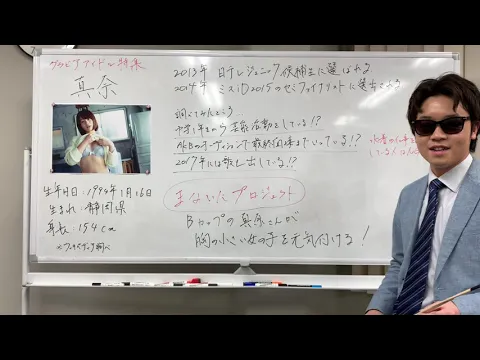 グラビアアイドル特集
真奈
生年月日:1994年1月16日
生まれ:静岡県
身長:154cm
2013年 日テレジェニック候補生に選ばれる
2014年 ミスiD2015のセミファイナリストに選出される
調べてみたところ
から芸能活動をしている!?
AKBのオーディションで最終候補まで
2017年には
している!?
まないたプロジェクト
Bカップの真奈さんが
胸の小さい女の子を元気付ける!